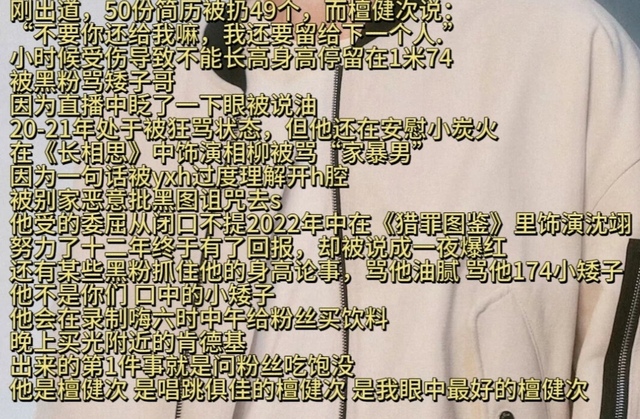 刚出道，50份简历被扔49个，而檀健次说：
“不要你还给我嘛，我还要留给下一个人.”
小时候受伤导致不能长高身高停留在1米74
被黑粉骂矮子哥
因为直播中眨了一下眼被说油
20-21年处于被狂骂状态，但他还在安慰小炭火
在《长相思》中饰演相柳被骂“家暴男”
因为一句话被yxh过度理解开h腔
被别家恶意批黑图诅咒去s
他受的委屈从闭口不提2022年中在《猎罪图鉴》里饰演沈翊
努力了十二年终于有了回报，却被说成一夜爆红
还有某些黑粉抓住他的身高论事，骂他油腻 骂他174小矮子
他不是你们 口中的小矮子
他会在录制嗨六时中午给粉丝买饮料
晚上买光附近的肯德基
出来的第1件事就是问粉丝吃饱没
他是檀健次 是唱跳俱佳的檀健次 是我眼中最好的檀健次